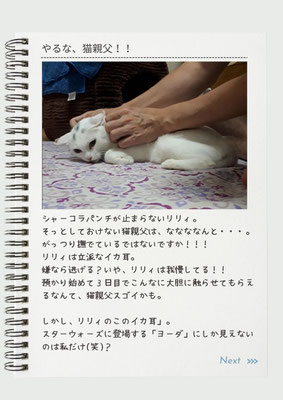 やるな、猫親父！！
シャーコラパンチが止まらないリリィ。
そっとしておけない猫親父は、ななななんと・・・。
がっつり撫でているではないですか！！！
リリィは立派なイカ耳。
嫌なら逃げる？いや、リリィは我慢してる！！
預かり始めて３日目でこんなに大胆に触らせてもらえ
るなんて、猫親父スゴイかも。

しかし、リリィのこのイカ耳』。
スターウォーズに登場する「ヨーダ」にしか見えない
のは私だけ(笑)？
Next >>>